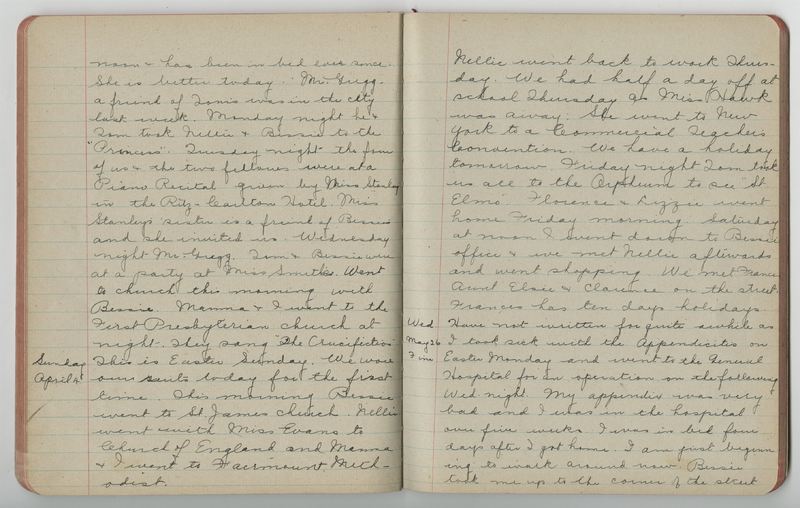 noon & has been in bed ever since.
She is better today. Mr. Gregg.
a friend of Toms was in the city
last week. Monday night he &
Tom took Nellie & Bessie to the
"Princess". Tuesday night the four
of us & the two fellows were at a
Piano Recital given by Miss Stanley
in the Ritz-Carlton Hotel. Miss
Stanleys sister is a friend of Bessies
and she invited us. Wednesday
night Mr. Gregg. Tom & Bessie were
at a party at Miss Smiths. Went
to church this morning with
Bessie. Mamma & I went to the
First Presbyterian church at
night. They sang "The Crucifiction"
Sunday
April 4
This is Easter Sunday. We wore
our suits today for the first
time. This morning Bessie
went to St. James church. Nellie
went with Miss Evans to
Church of England and Mamma
& I went to Fairmount Meth-
odist.
Nellie went back to work Thurs-
day. We had half a day off at
school Thursday as Miss Hawk
was away. She went to New
York to a Commercial Teachers
Convention. We have a holiday
tomorrow. Friday night Tom took
us all to the Orpheum to see "St.
Elmo. Florence & Lizzie went
home Friday morning. Saturday
at noon I went down to Bessie
office & we met Nellie afterwards
and went shopping. We met Frances
Aunt Elsie & Clarence on the street.
Frances has ten days holidays
Wed
May 26
Fine
Have not written for quite awhile as
I took sick with the Appendicites on
Easter Monday and went to the General
Hospital for an operation on the following
Wed night. My appendix was very
bad and I was in the hospital
over five weeks. I was in bed four
days after I got home. I am just beginn
ing to walk around now. Bessie
took me up to the corner of the street